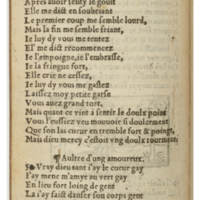 Apres auoir senty le goust
El me dict en soubriant
Le premier coup me semble lourd,
Mais la fin me semble friant,
Ie luy dy vous me tentez
El me dict recommencez
Ie l'empoigne, ie l'embrasse,
Ie la fringue fort,
Elle crie ne cessez,
Ie luy dy vous me gastez
Laissez moy petite garse
Vous auez grand tort,
Mais quant ce vint a sentir le doulx point
Vous l'eussiez veu mouuoir si doulcement
Que son las cueur en tremble fort & poingt,
Mais dieu mercy c'estoit vng doulx tourment,
¶ Aultre d'ung amoureux.
Vray dieu tant i'ay le cueur gay
I'ay mene m'amye au vert gay
En lieu fort loing de gent
La i'ay faict danser son corps gent